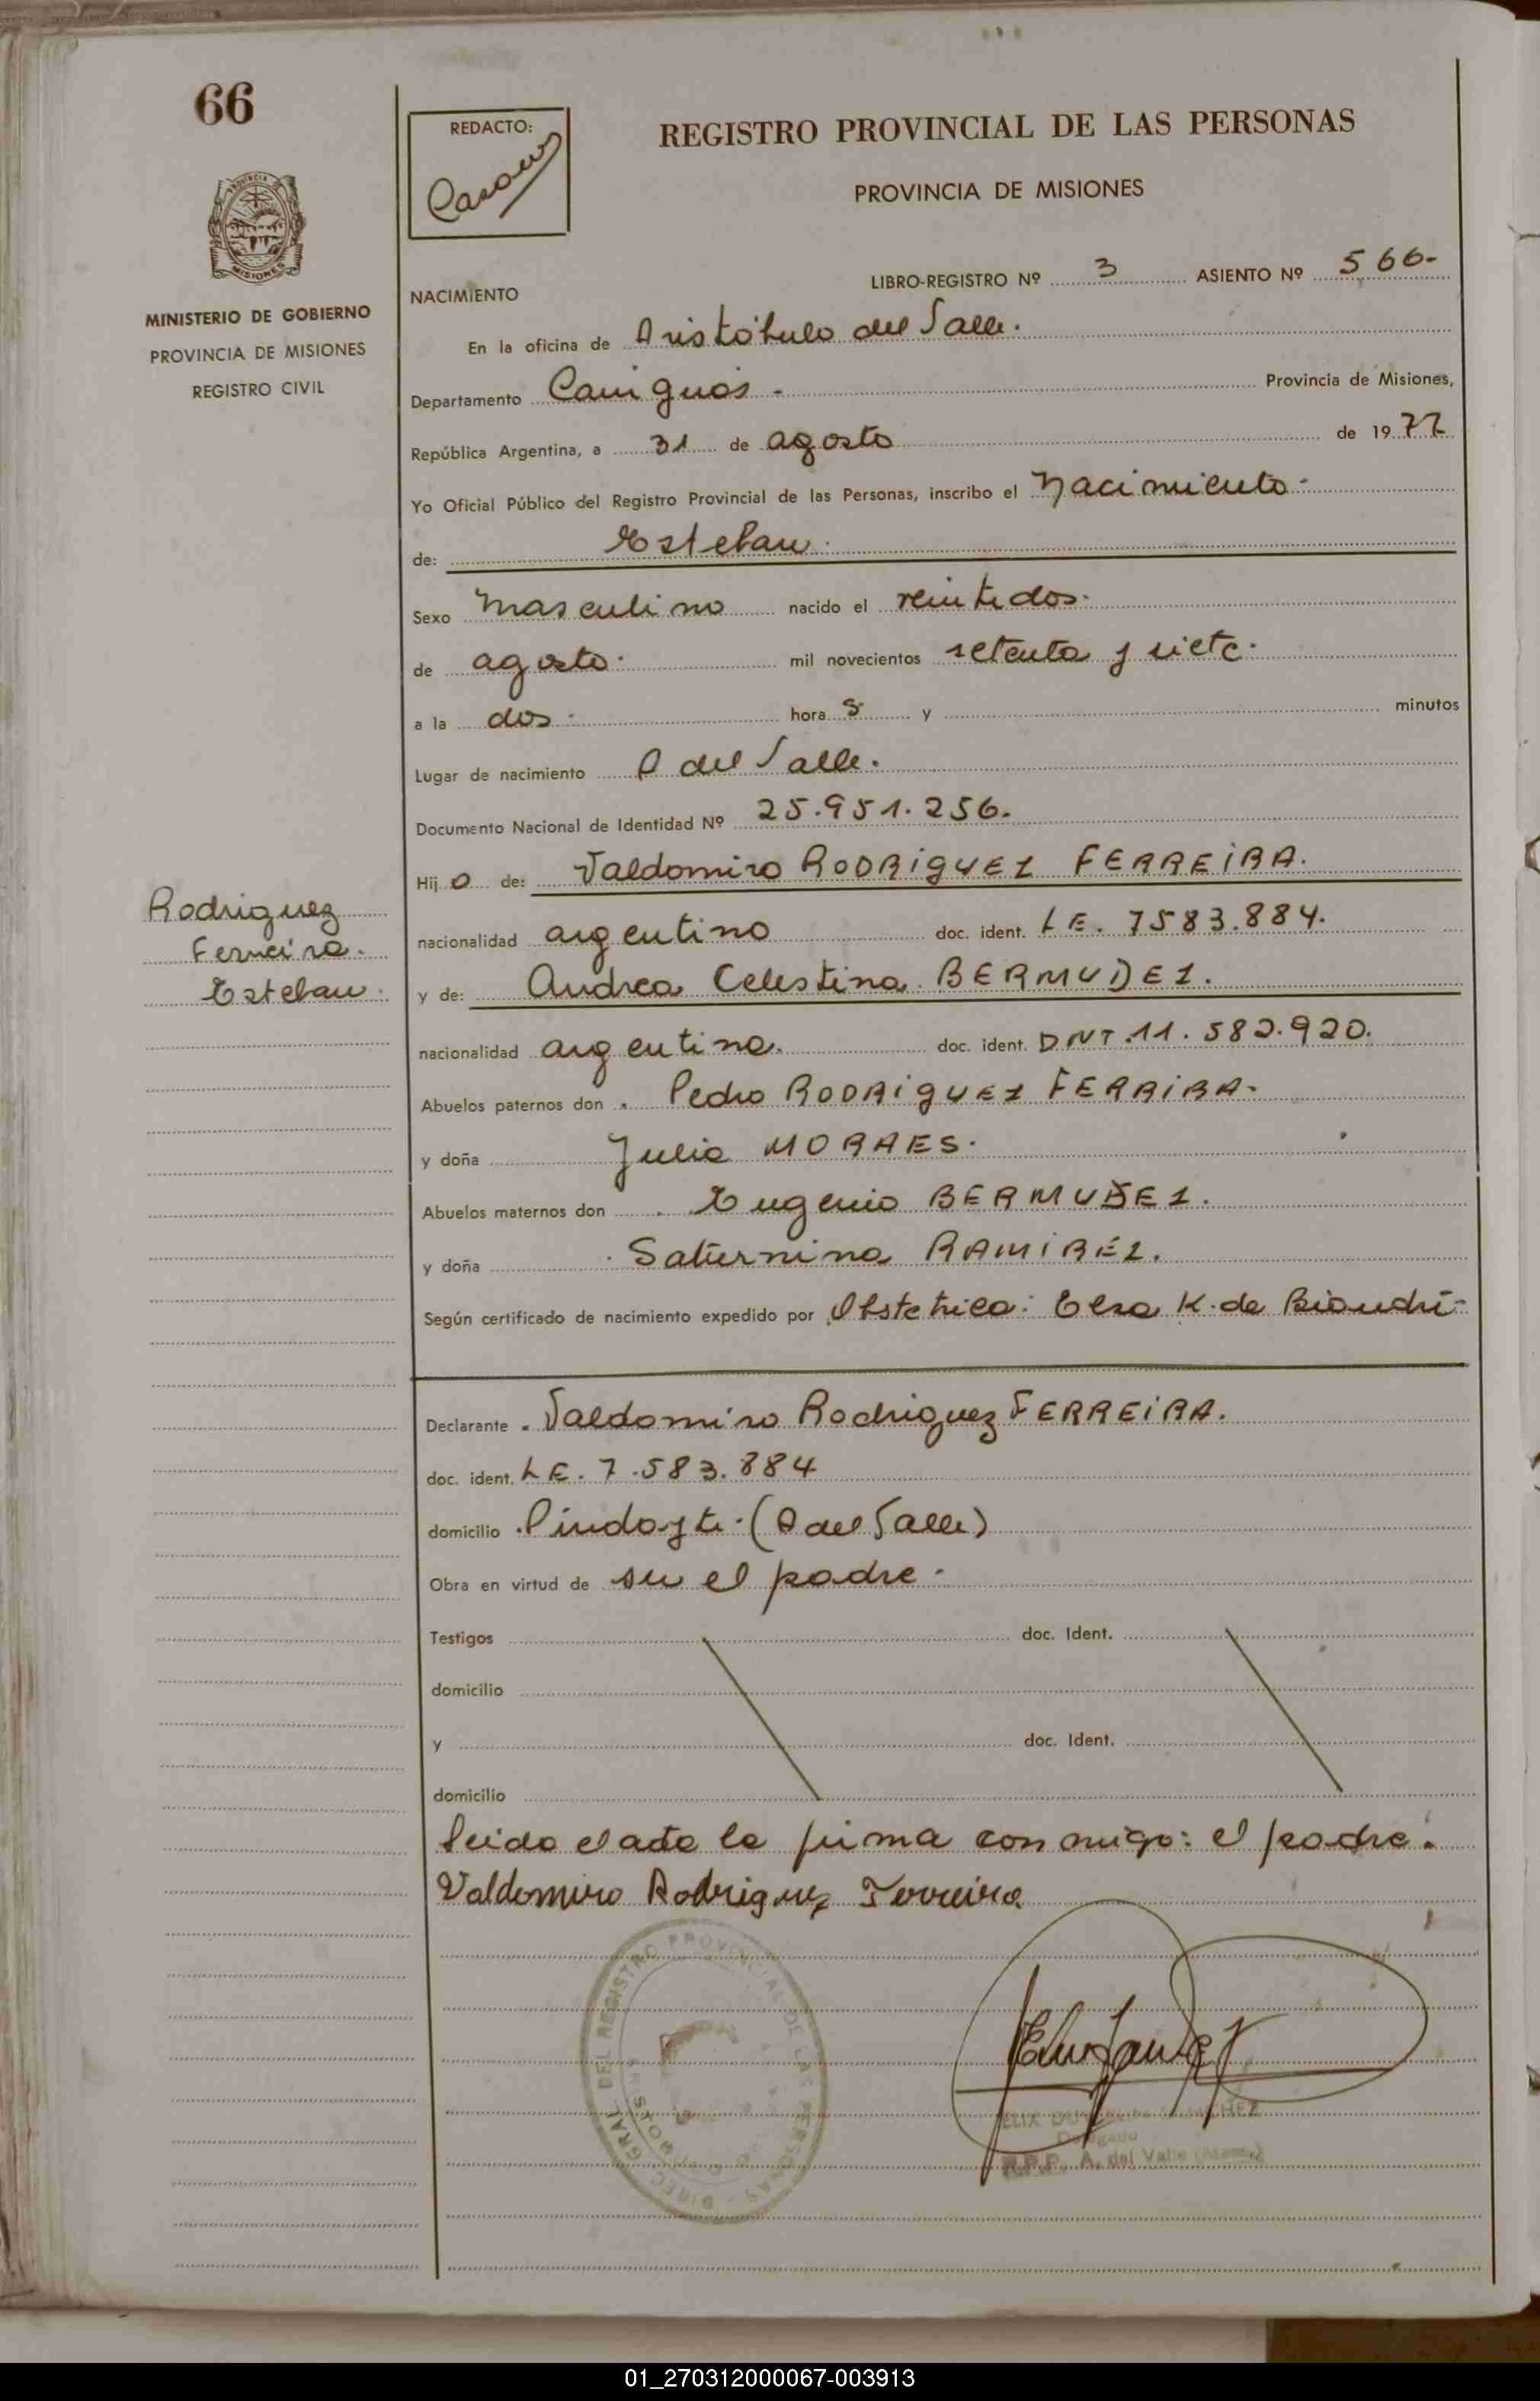 66
REDACTO:
REGISTRO PROVINCIAL DE LAS PERSONAS
PROVINCIA DE MISIONES
PROVINCIA
MISIONES
MINISTERIO DE GOBIERNO
PROVINCIA DE MISIONES
REGISTRO CIVIL
LIBRO-REGISTRO Nº 3 ASIENTO Nº 566-
NACIMIENTO
En la oficina de Aristóbulo del Valle.
Departamento Cainguás - Provincia de Misiones,
República Argentina, a 31 de agosto de 1977
Yo Oficial Público del Registro Provincial de las Personas, inscribo el Nacimiento-
de: Esteban.
Sexo masculino nacido el veintidos.
de agosto. mil novecientos setenta y siete.
a la dos. hora s y minutos
Lugar de nacimiento A del Valle.
Documento Nacional de Identidad Nº 25.951.256.
Hij o de: Valdomiro RODRIGUEZ FERREIRA.
nacionalidad argentino doc. ident. LE. 7583.884.
y de: Andrea Celestina BERMUDEZ.
nacionalidad argentina. doc. ident. DNI.11.582.920.
Abuelos paternos don Pedro RODRIGUEZ FERRIRA-
y doña Julia MORAES.
Abuelos maternos don Eugenio BERMUDEZ.
y doña Saturnina RAMIREZ.
Según certificado de nacimiento expedido por Obstetrica: Elsa K. de Biondri-
Rodriguez
Ferreira.
Esteban.
Declarante Valdomiro Rodriguez FERREIRA.
doc. ident. LE. 7.583.884
domicilio Pindayti. (A del Valle)
Obra en virtud de ser el padre.
Testigos doc. Ident.
domicilio
y doc. Ident.
domicilio
Leida el acta la firma con migo: el padre.
Valdomiro Rodriguez Ferreira
DIREC. GRAL. DEL REGISTRO PROVINCIAL DE LAS PERSONAS
Delegado
R.P.P. A. del Valle
01_270312000067-003913